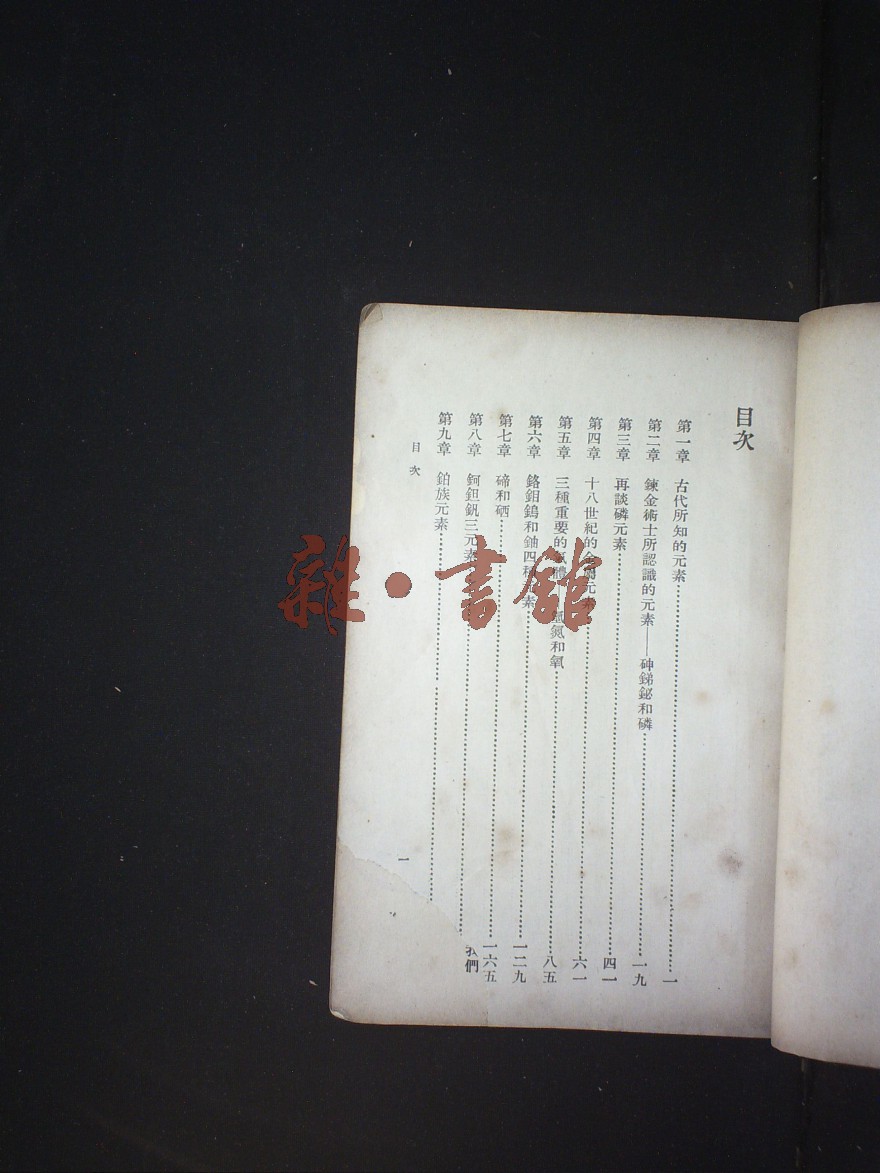 目次
第一章 古代所知的元素…………一
第二章 鍊金術士所認識的元素——砷銻鉍和磷…………一九
第三章 再談磷元素…………四一
第四章 十八世紀的金屬元素…………六一
第五章 三種重要的氣體 氫氮和氧…………八五
第六章 鉻鉬鎢和鈾四種元素…………一二九
第七章 碲和硒…………一六五
第八章 鈳鉭釩三元素…………
我們
第九章 鉑族元素…………
目次
一
雜·書館